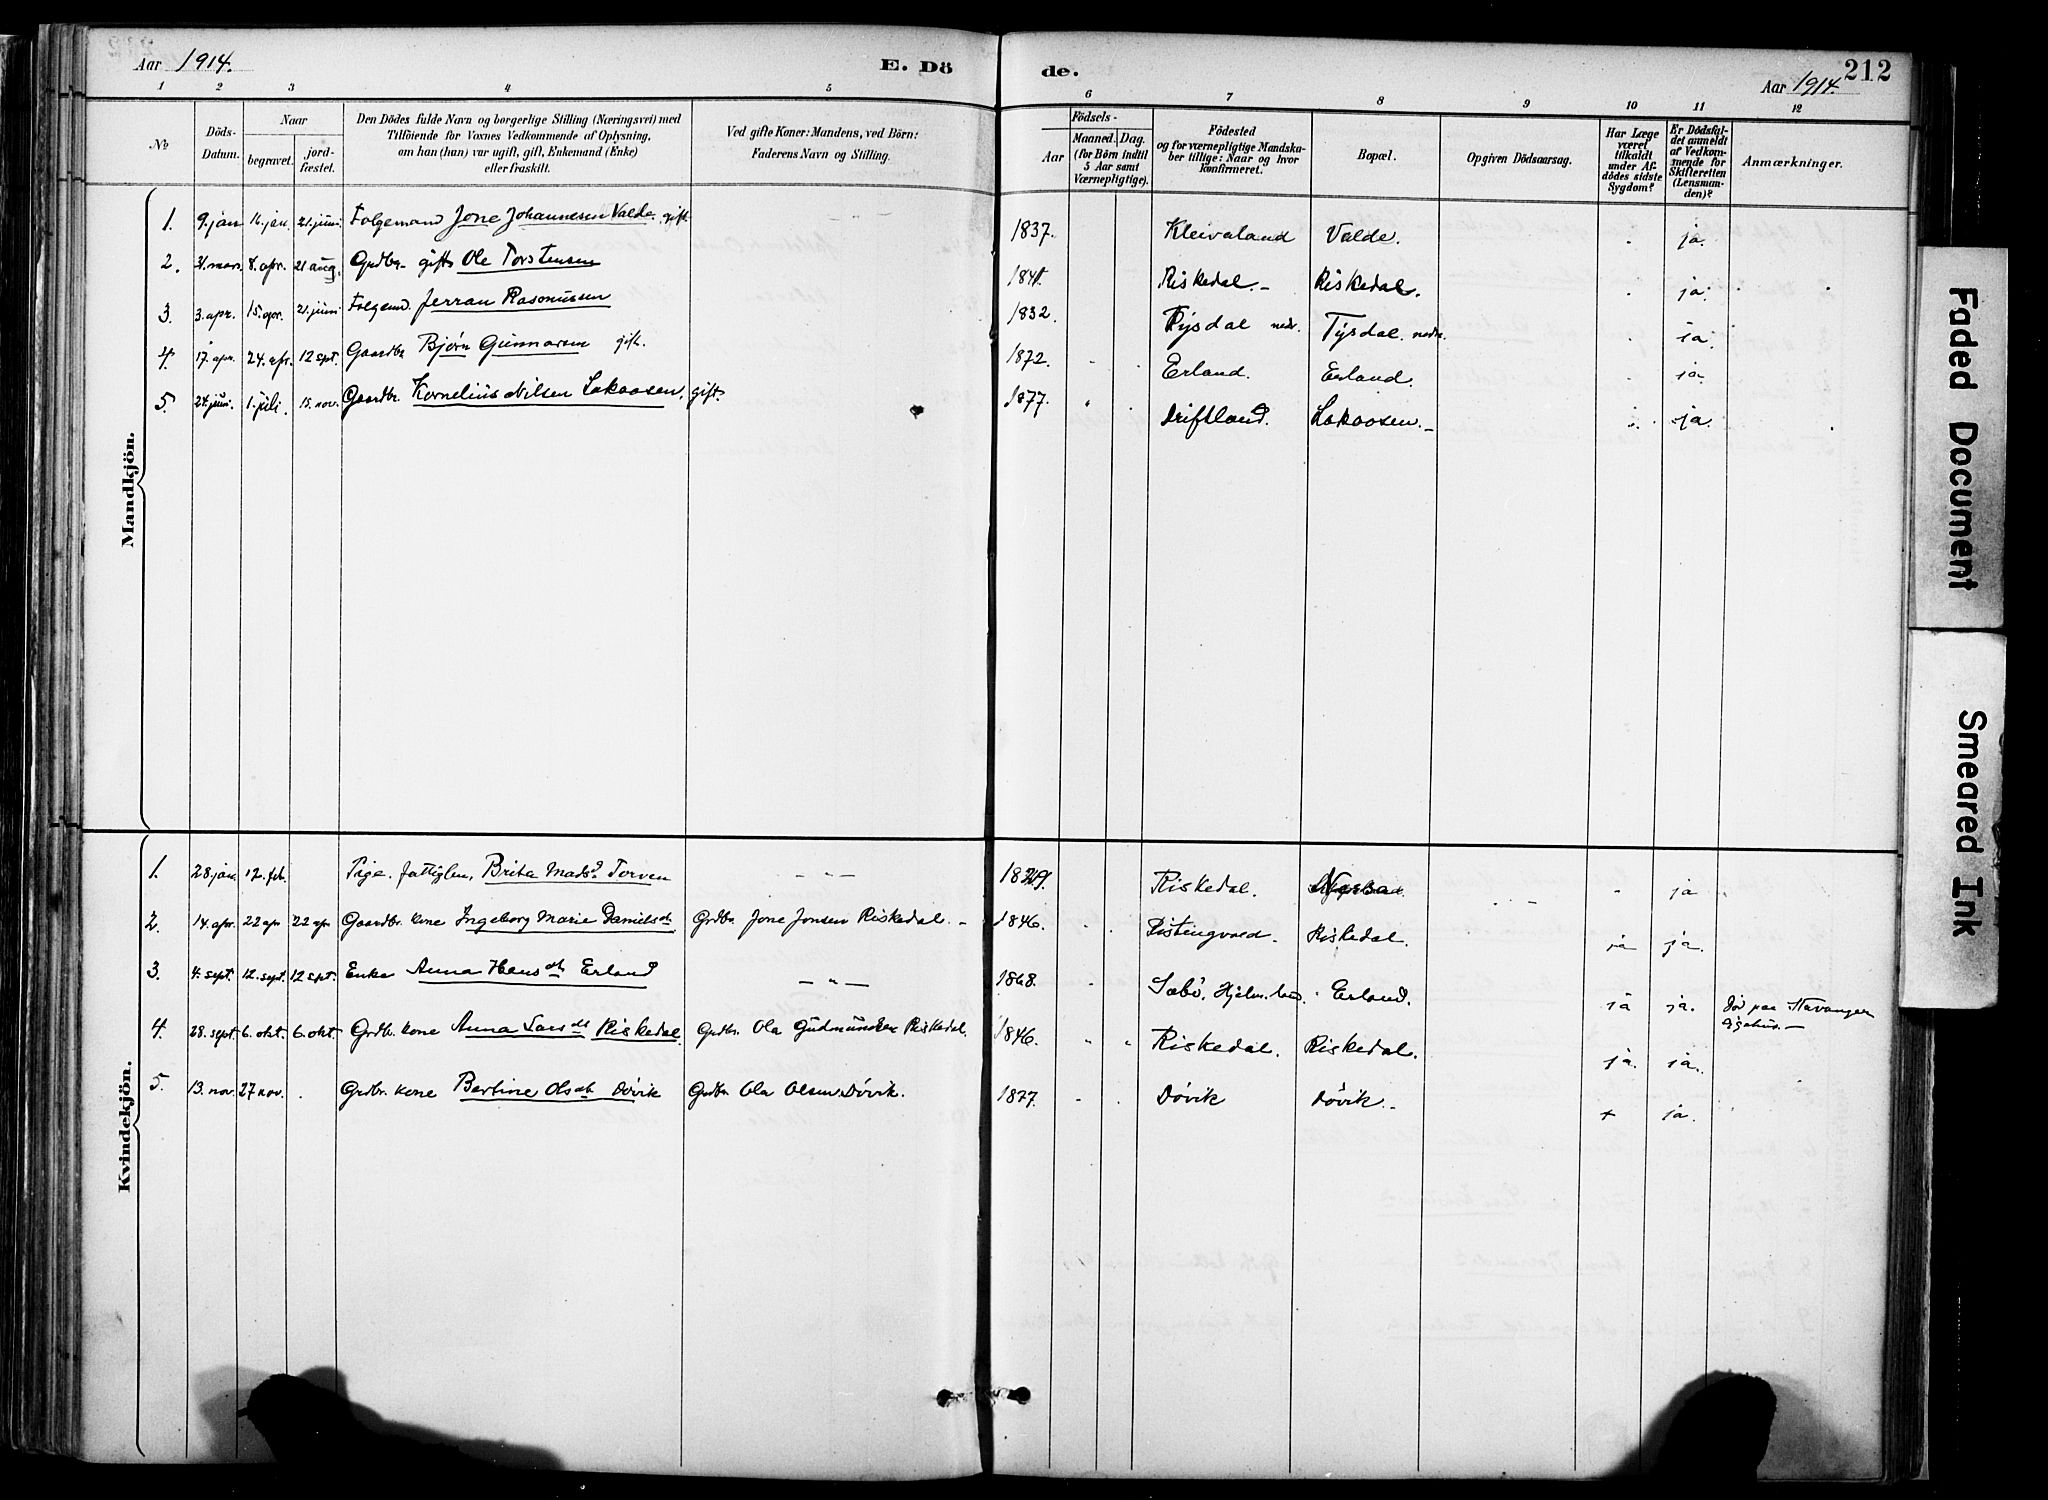 Aar 1914. E. Dö
de. Aar 1914. 212
1 2 3 4 5 6 7 8 9 10 11 12
№
Döds-Datum.
Naar
begravet.
jord-fæstet.
Den Dödes fulde Navn og borgerlige Stilling (Næringsvei) med
Tilföiende for Voxnes Vedkommende af Oplysning,
om han (hun) var ugift, gift, Enkemand (Enke)
eller fraskilt.
Ved gifte Koner: Mandens, ved Börn:
Faderens Navn og Stilling.
Födsels-
Aar
Maaned. Dag.
(for Börn indtil
5 Aar samt
Værnepligtige).
Födested
og for værnepligtige Mandska-
ber tillige: Naar og hvor
konfirmeret.
Bopæl.
Opgiven Dödsaarsag.
Har Læge
været
tilkaldt
under Af-
dödes sidste
Sygdom?
Er Dödsfal-
det anmeldt
af Vedkom-
mende for
Skifteretten
(Lensman-
den)?
Anmærkninger.
Mandkjön.
1. 9. jan 16. jan 21. juni Folgemand Jone Johannesen Valde. gift 1837. Kleivaland Valde. ja.
2. 31. mars 8. apr. 21 aug. Grdbr. gift Ole Torstensen Riskedal. Riskedal. ja.
3. 3. apr. 15. apr. 21. juni Folgemd. Jerran Rasmussen 1832. Tysdal nedr. Tysdal nedr. ja.
4. 17. apr. 24. apr. 12 sept. Gaardbr Bjørn Gunnarsen gift. 1872. Erland. Erland. ja.
5. 24. juni. 1. juli. 15. nov. Gaardbr. Kornelius Nilsen Lakaosen, gift. 1877. Driftland. Lakaosen. ja.
Kvindekjön.
1. 28 jan. 12. feb. Pige. fattiglem, Brita Madsd. Torven Riskedal. ja
2. 14. apr. 22 apr 22 apr Gaardbr. kone Ingeborg Marie Danielsdt. Grdbr. Jone Jonsen Riskedal. 1846. Riskedal. ja ja.
3. 4. sept. 12. sept. 12 sept. Enke Anna Hansdt. Erland 1868. Sæbö, Hjelmeland. Erland. ja ja. Død paa Stavanger
sygehus.
4. 28. sept. 6. okt. 6. okt. Grdbr. kone Anna Larsdt. Riskedal. Grdbr. Ola Gudmundsen Riskedal. 1846. Riskedal. Riskedal. ja. ja.
5. 13. nov. 27 nov. Grdbr. kone Bertine Olsdt. Døvik Grdbr Ola Olsen Døvik. 1877. Døvik Døvik. + ja.
Faded Document
Smeared Ink